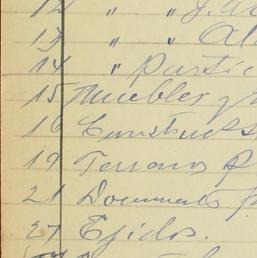 12 " " J.
13 " " Al
14 " Partic
15 Muebles y
16 Construct
19 Terrenos P
21 Documents P
27 Ejidos.